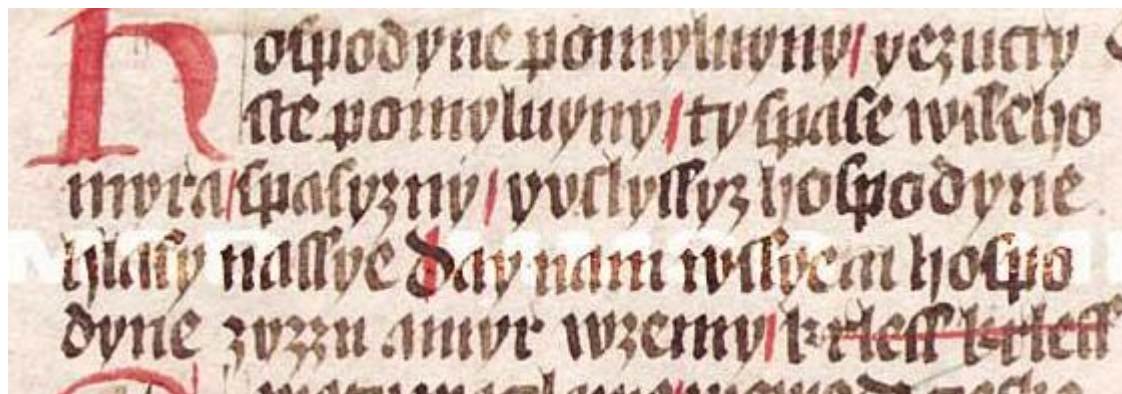 Hospodyne pomyluyny / yezucry
ste pomyluyny / ty spase wsseho
myra / spasyzny / yvslyssyz hospodyne
hlasy nassye day nam wssyem hospo
dyne zyzzn amyr wzemy / krless krless